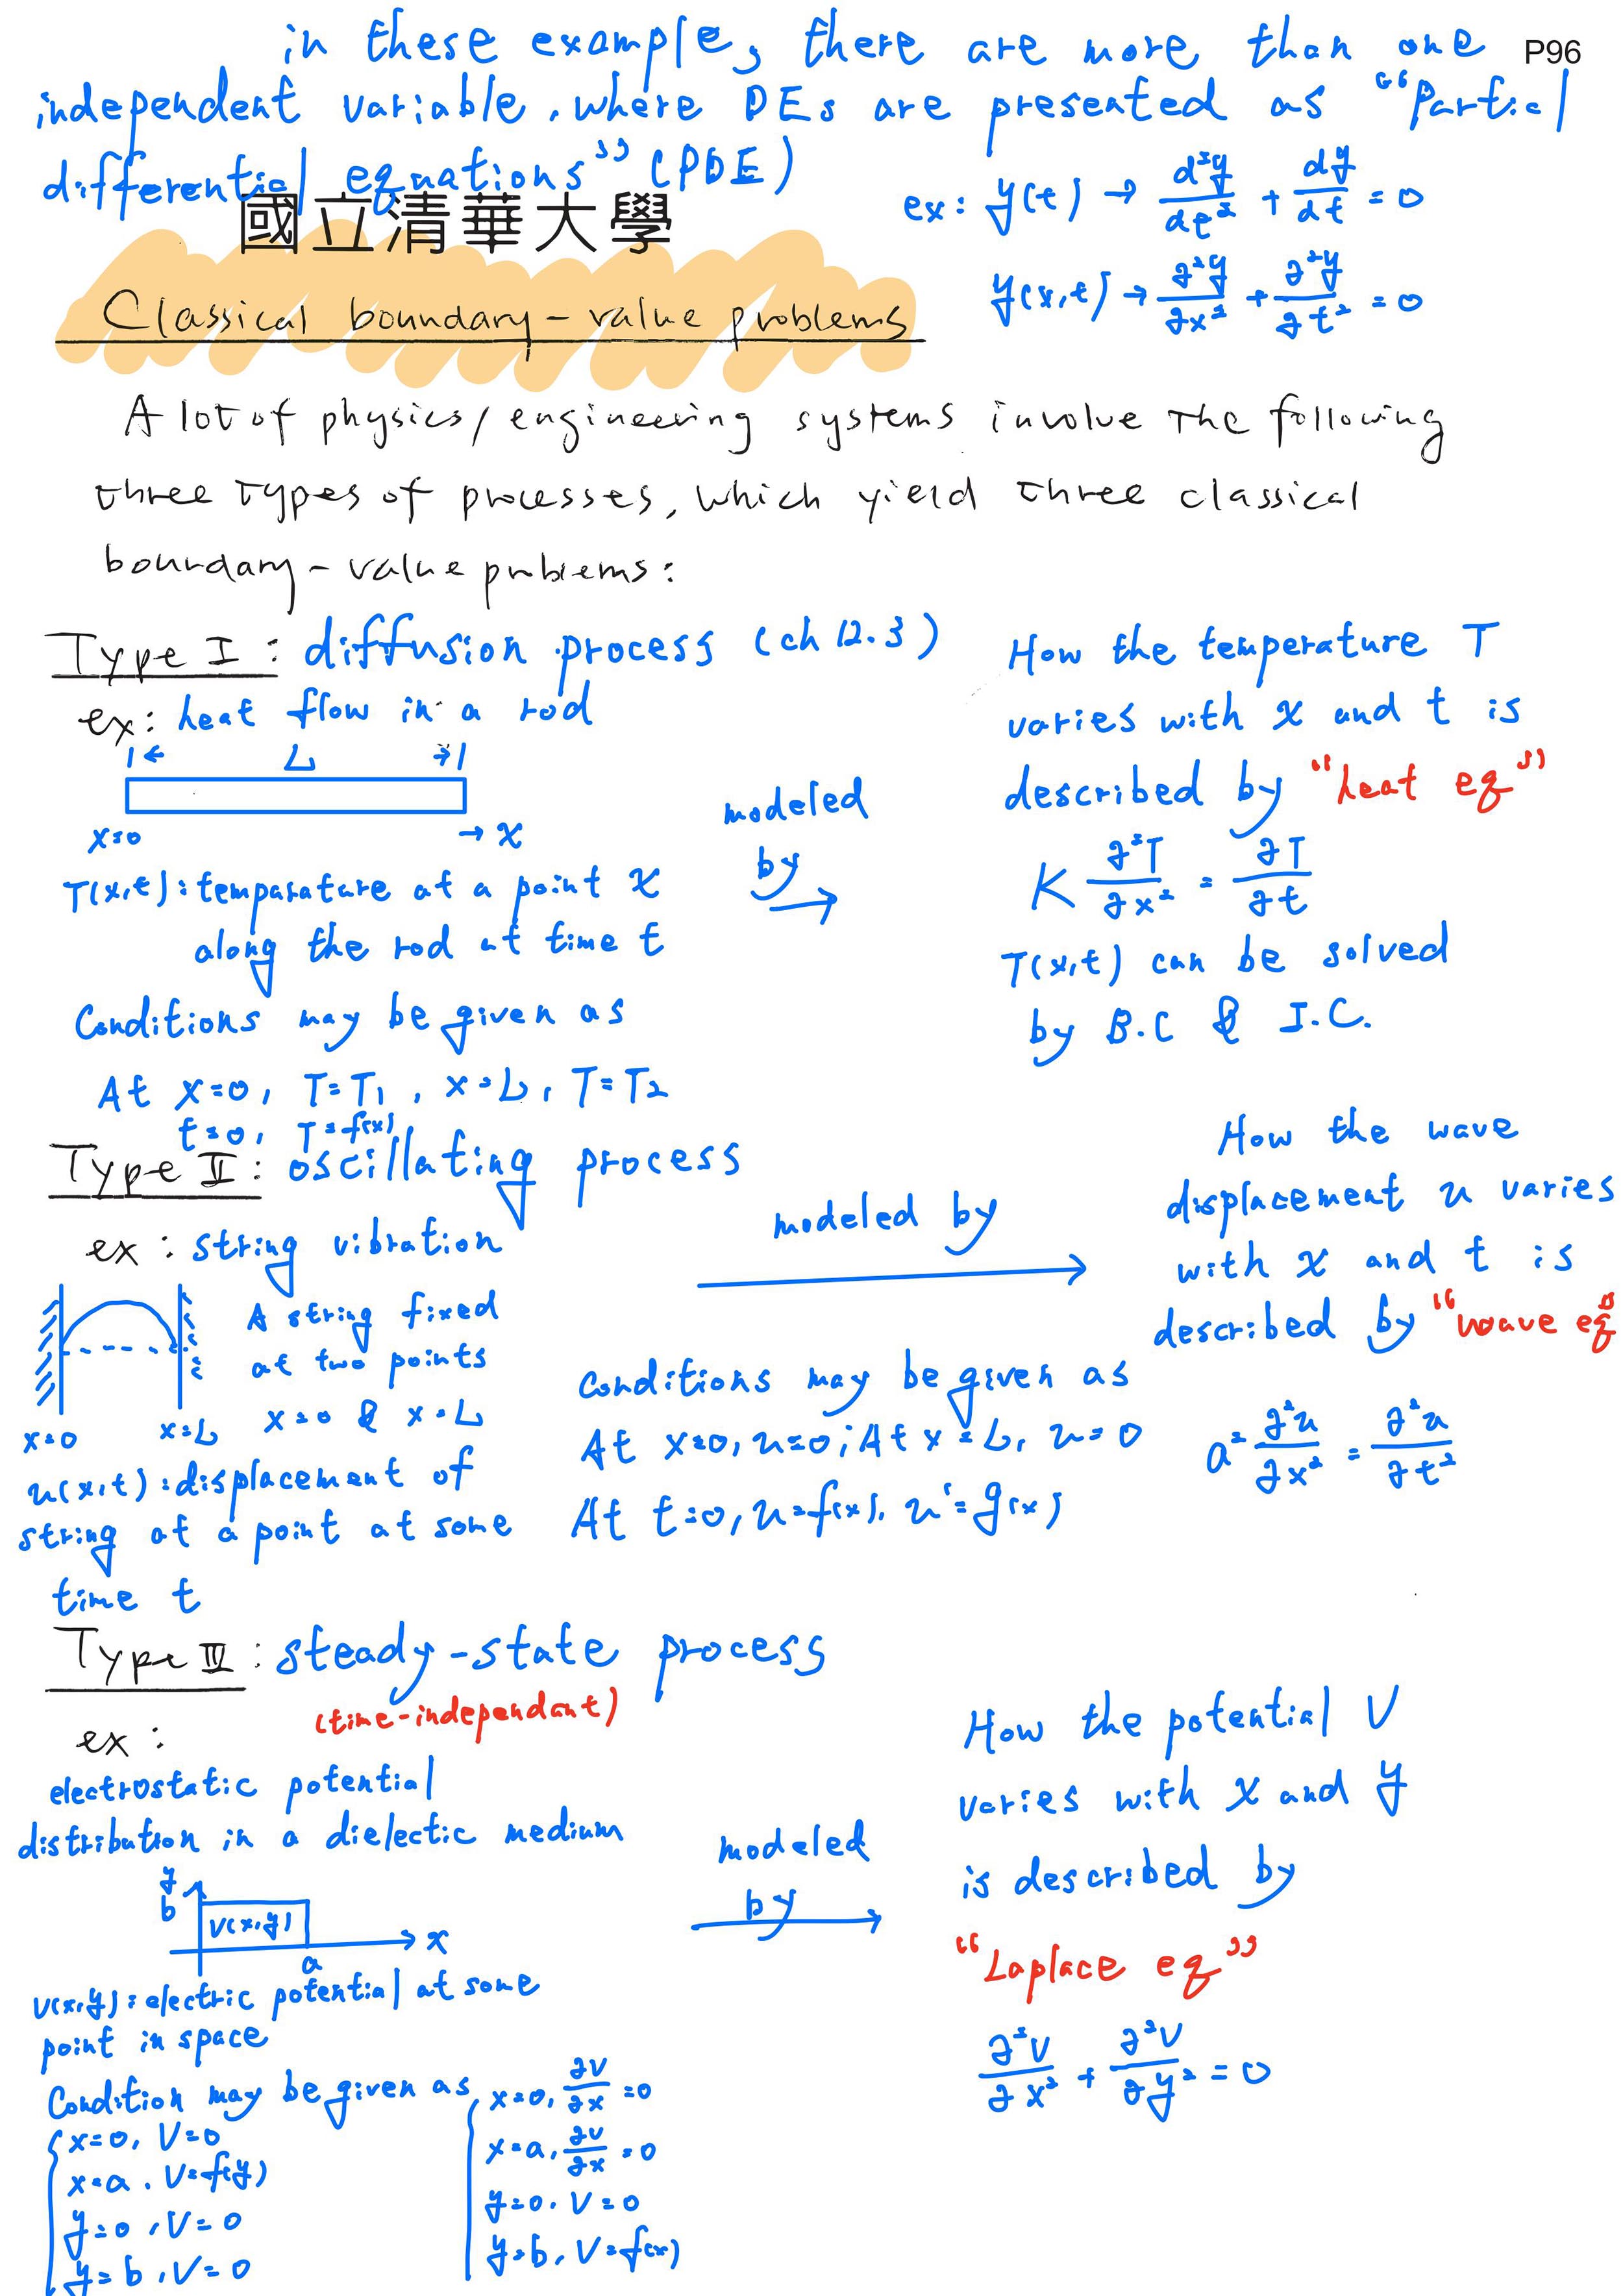 in these example, there are more than one
P96
independent variable, where DEs are presented as "Partial
differential equations" (PDE)
ex: y(t) → d²y/dt² + dy/dt = 0
國立清華大學
y(x,t) → ∂²y/∂x² + ∂²y/∂t² = 0
Classical boundary-value problems
A lot of physics/engineering systems involve the following
three types of processes, which yield three classical
boundary-value problems:
Type I: diffusion process (ch 12.3)
ex: heat flow in a rod
L
x=0 → x
T(x,t): temparature at a point x
along the rod at time t
Conditions may be given as
At x=0, T=T₁, x=L, T=T₂
t=0, T=f(x)
modeled
by
How the temperature T
varies with x and t is
described by "heat eq"
K ∂²T/∂x² = ∂T/∂t
T(x,t) can be solved
by B.C & I.C.
Type II: oscillating process
ex: string vibration
A string fixed
at two points
x=0 & x=L
x=0 x=L
u(x,t): displacement of
string at a point at some
time t
modeled by
Conditions may be given as
At x=0, u=0; At x=L, u=0
At t=0, u=f(x), u'=g(x)
How the wave
displacement u varies
with x and t is
described by "wave eq"
a² ∂²u/∂x² = ∂²u/∂t²
Type III: steady-state process
(time-independant)
ex:
electrostatic potential
distribution in a dielectic medium
y
b
V(x,y)
x
a
V(x,y): electric potential at some
point in space
Condition may be given as
x=0, V=0
x=a, V=f(y)
y=0, V=0
y=b, V=0
x=0, ∂V/∂x=0
x=a, ∂V/∂x=0
y=0, V=0
y=b, V=f(x)
modeled
by
How the potential V
varies with x and y
is described by
"Laplace eq"
∂²V/∂x² + ∂²V/∂y² = 0